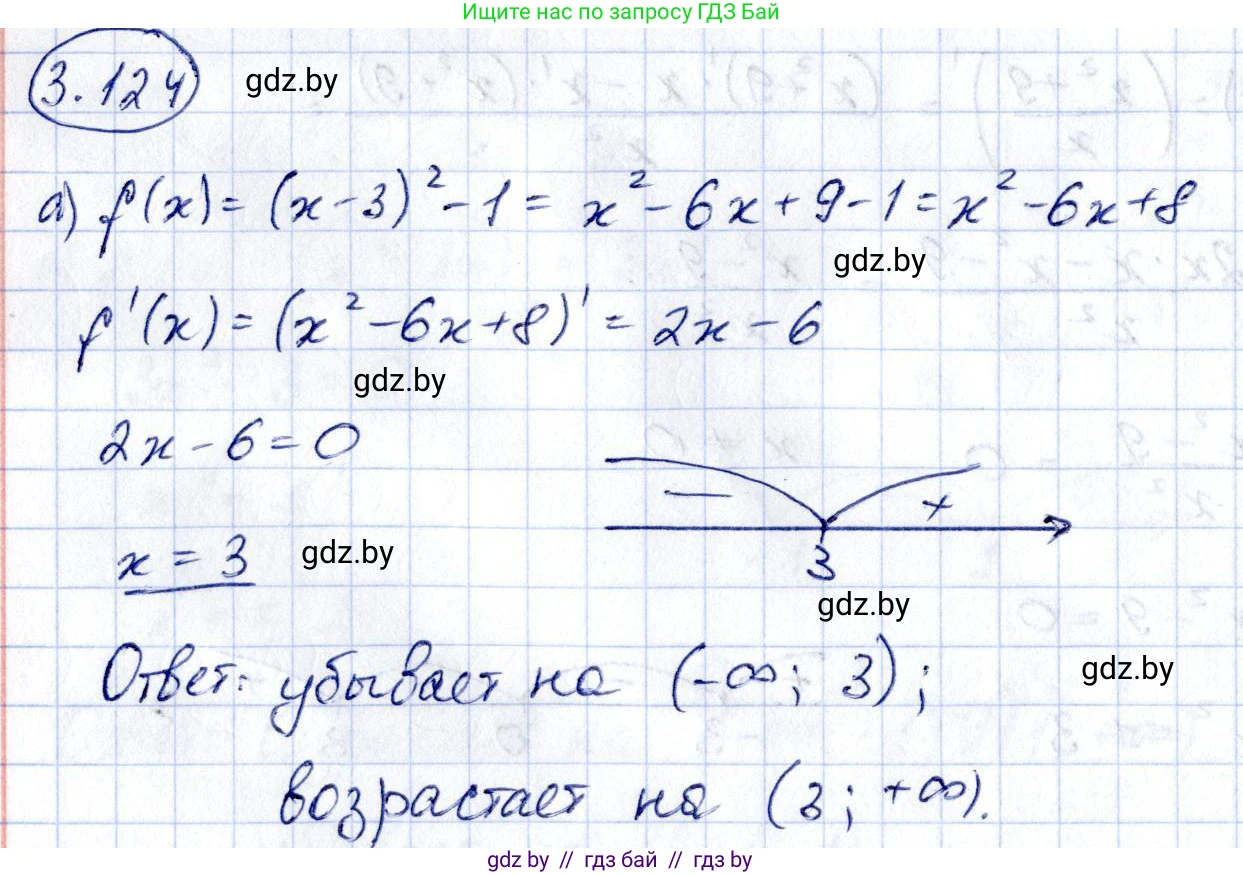 Ищите нас по запросу ГДЗ Бай
3.124 gdz.by
а) f(x) = (x-3)² - 1 = x² - 6x + 9 - 1 = x² - 6x + 8
gdz.by
f'(x) = (x² - 6x + 8)' = 2x - 6
gdz.by
2x - 6 = 0
− +
x = 3 gdz.by
3
gdz.by
Ответ: убывает на (-∞; 3);
gdz.by
возрастает на (3; +∞).
gdz by // гдз бай // гдз by